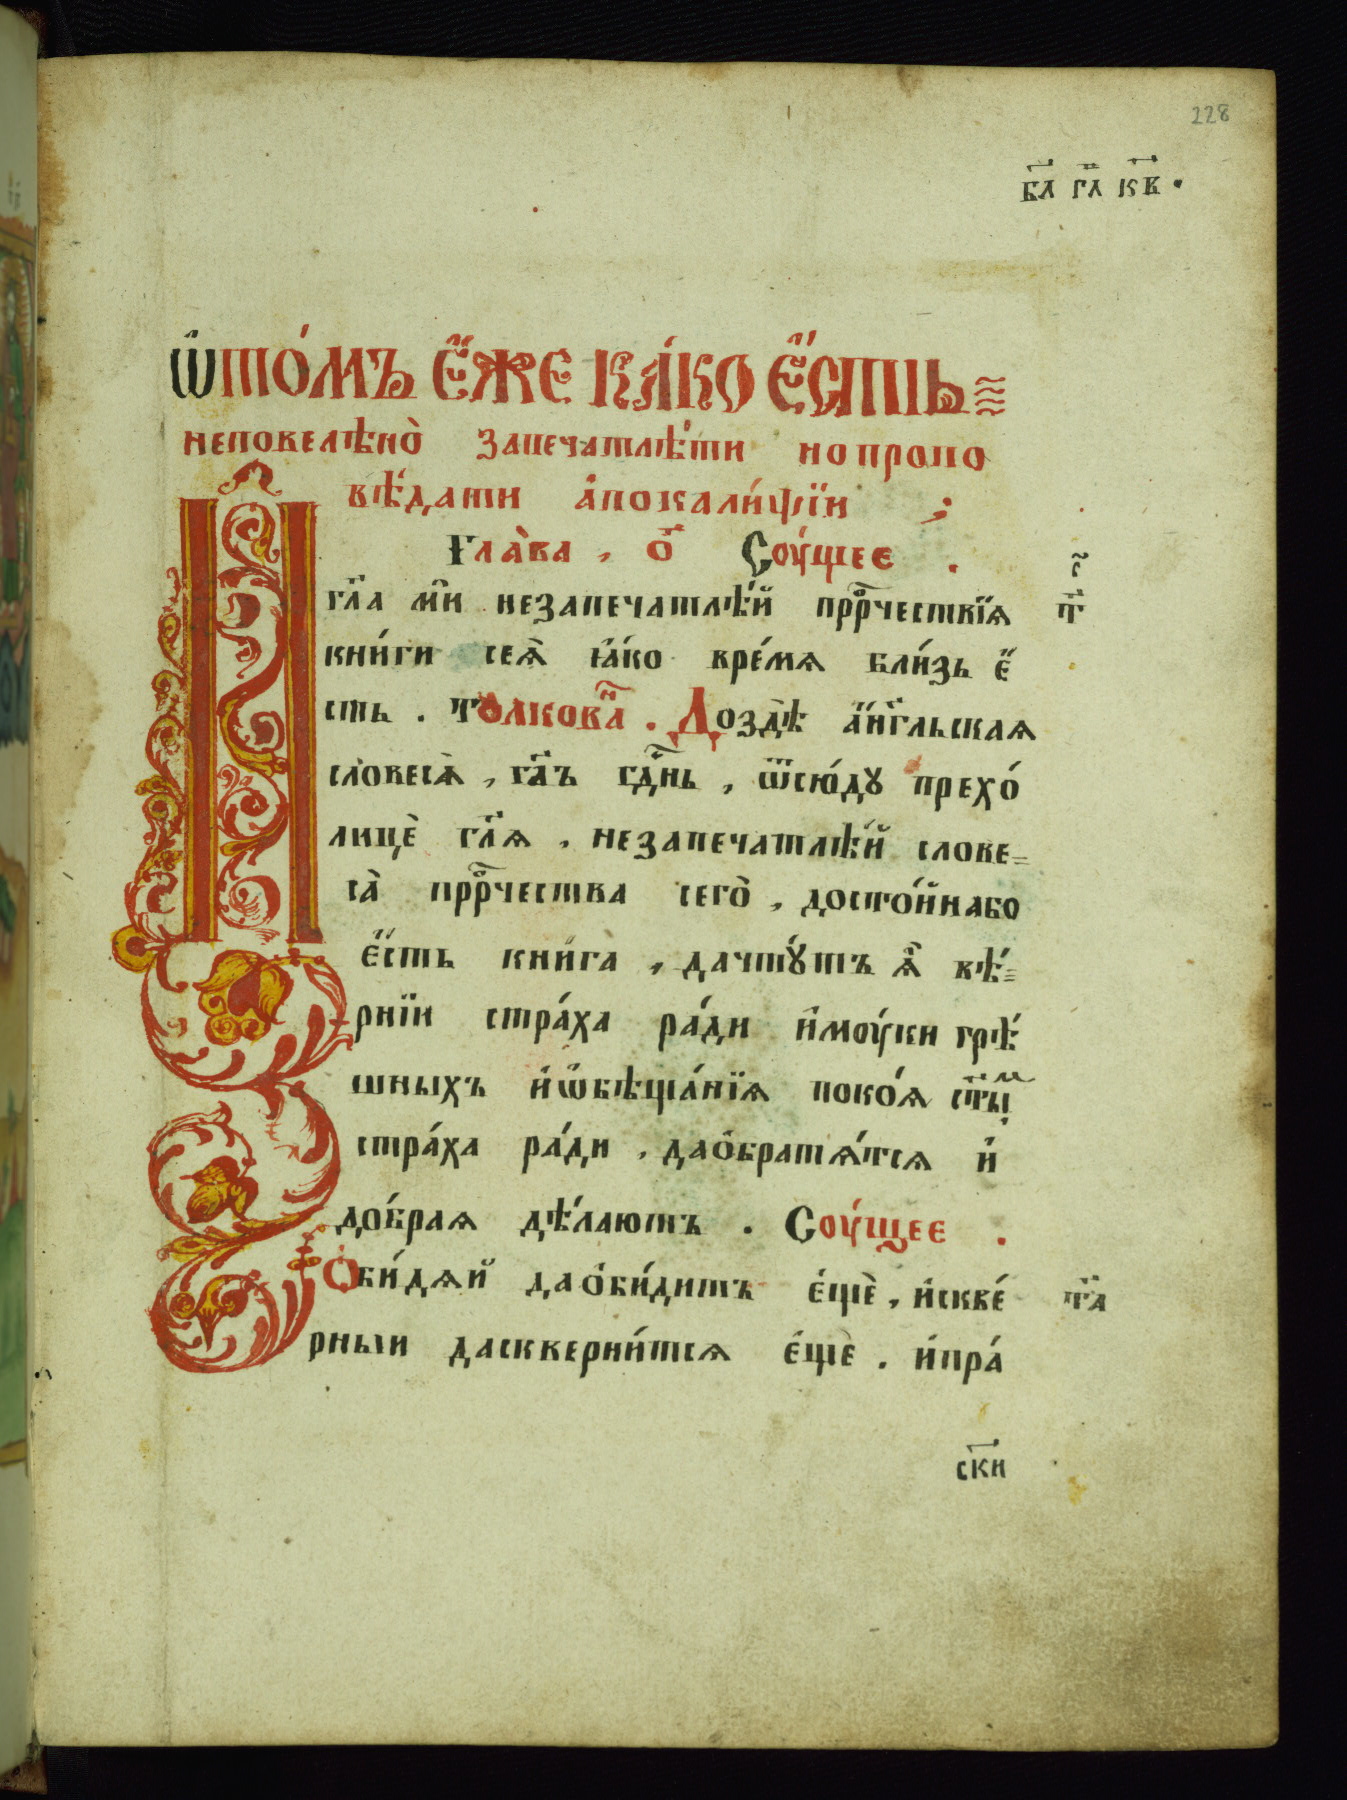 228
бл҃ гл҃ к҃в ·
Ѡ҆то́мъ є҆́же ка́ко є҆́сть
неповелѣно̀ запечатлѣ́ти нопропо
вѣ́дати а҆покали́ѱїи ;
Глава̀ , о҃ Соу́щее .
гл҃а мѝ незапечатлѣ́й прⷪ҇рчествїѧ
кни́ги сеѧ̀ ꙗ҆́ко вре́мѧ бли́зь є҆́
сть . Толковⷩ҇а . Доздѣ̀ а҆́нг҃льскаѧ
словеса̀ , гл҃ъ гдⷭ҇нь , ѿсю́дꙋ прехо́
лицѐ гл҃ѧ , незапечатлѣ́й слове=
са̀ прⷪ҇рчества сего̀ , досто́йнабо
є҆́сть книга , дачтꙋ́тъ ѧ҆̀ вѣ́=
рнїи стра́ха ра́ди и҆моу́ки грѣ́
шныхъ и҆ѡ҆бѣща́нїѧ поко́ѧ ст҃ыⷨ
стра́ха ра́ди , даѻбратѧ́тсѧ и҆
до́браѧ дѣ́лаютъ . Соу́щее .
Ѻби́дѧй даѻби́дитъ є҆щѐ , и҆скве́
рныи дасквернитсѧ є҆щѐ . и҆пра́
т҃
т҃а
ски